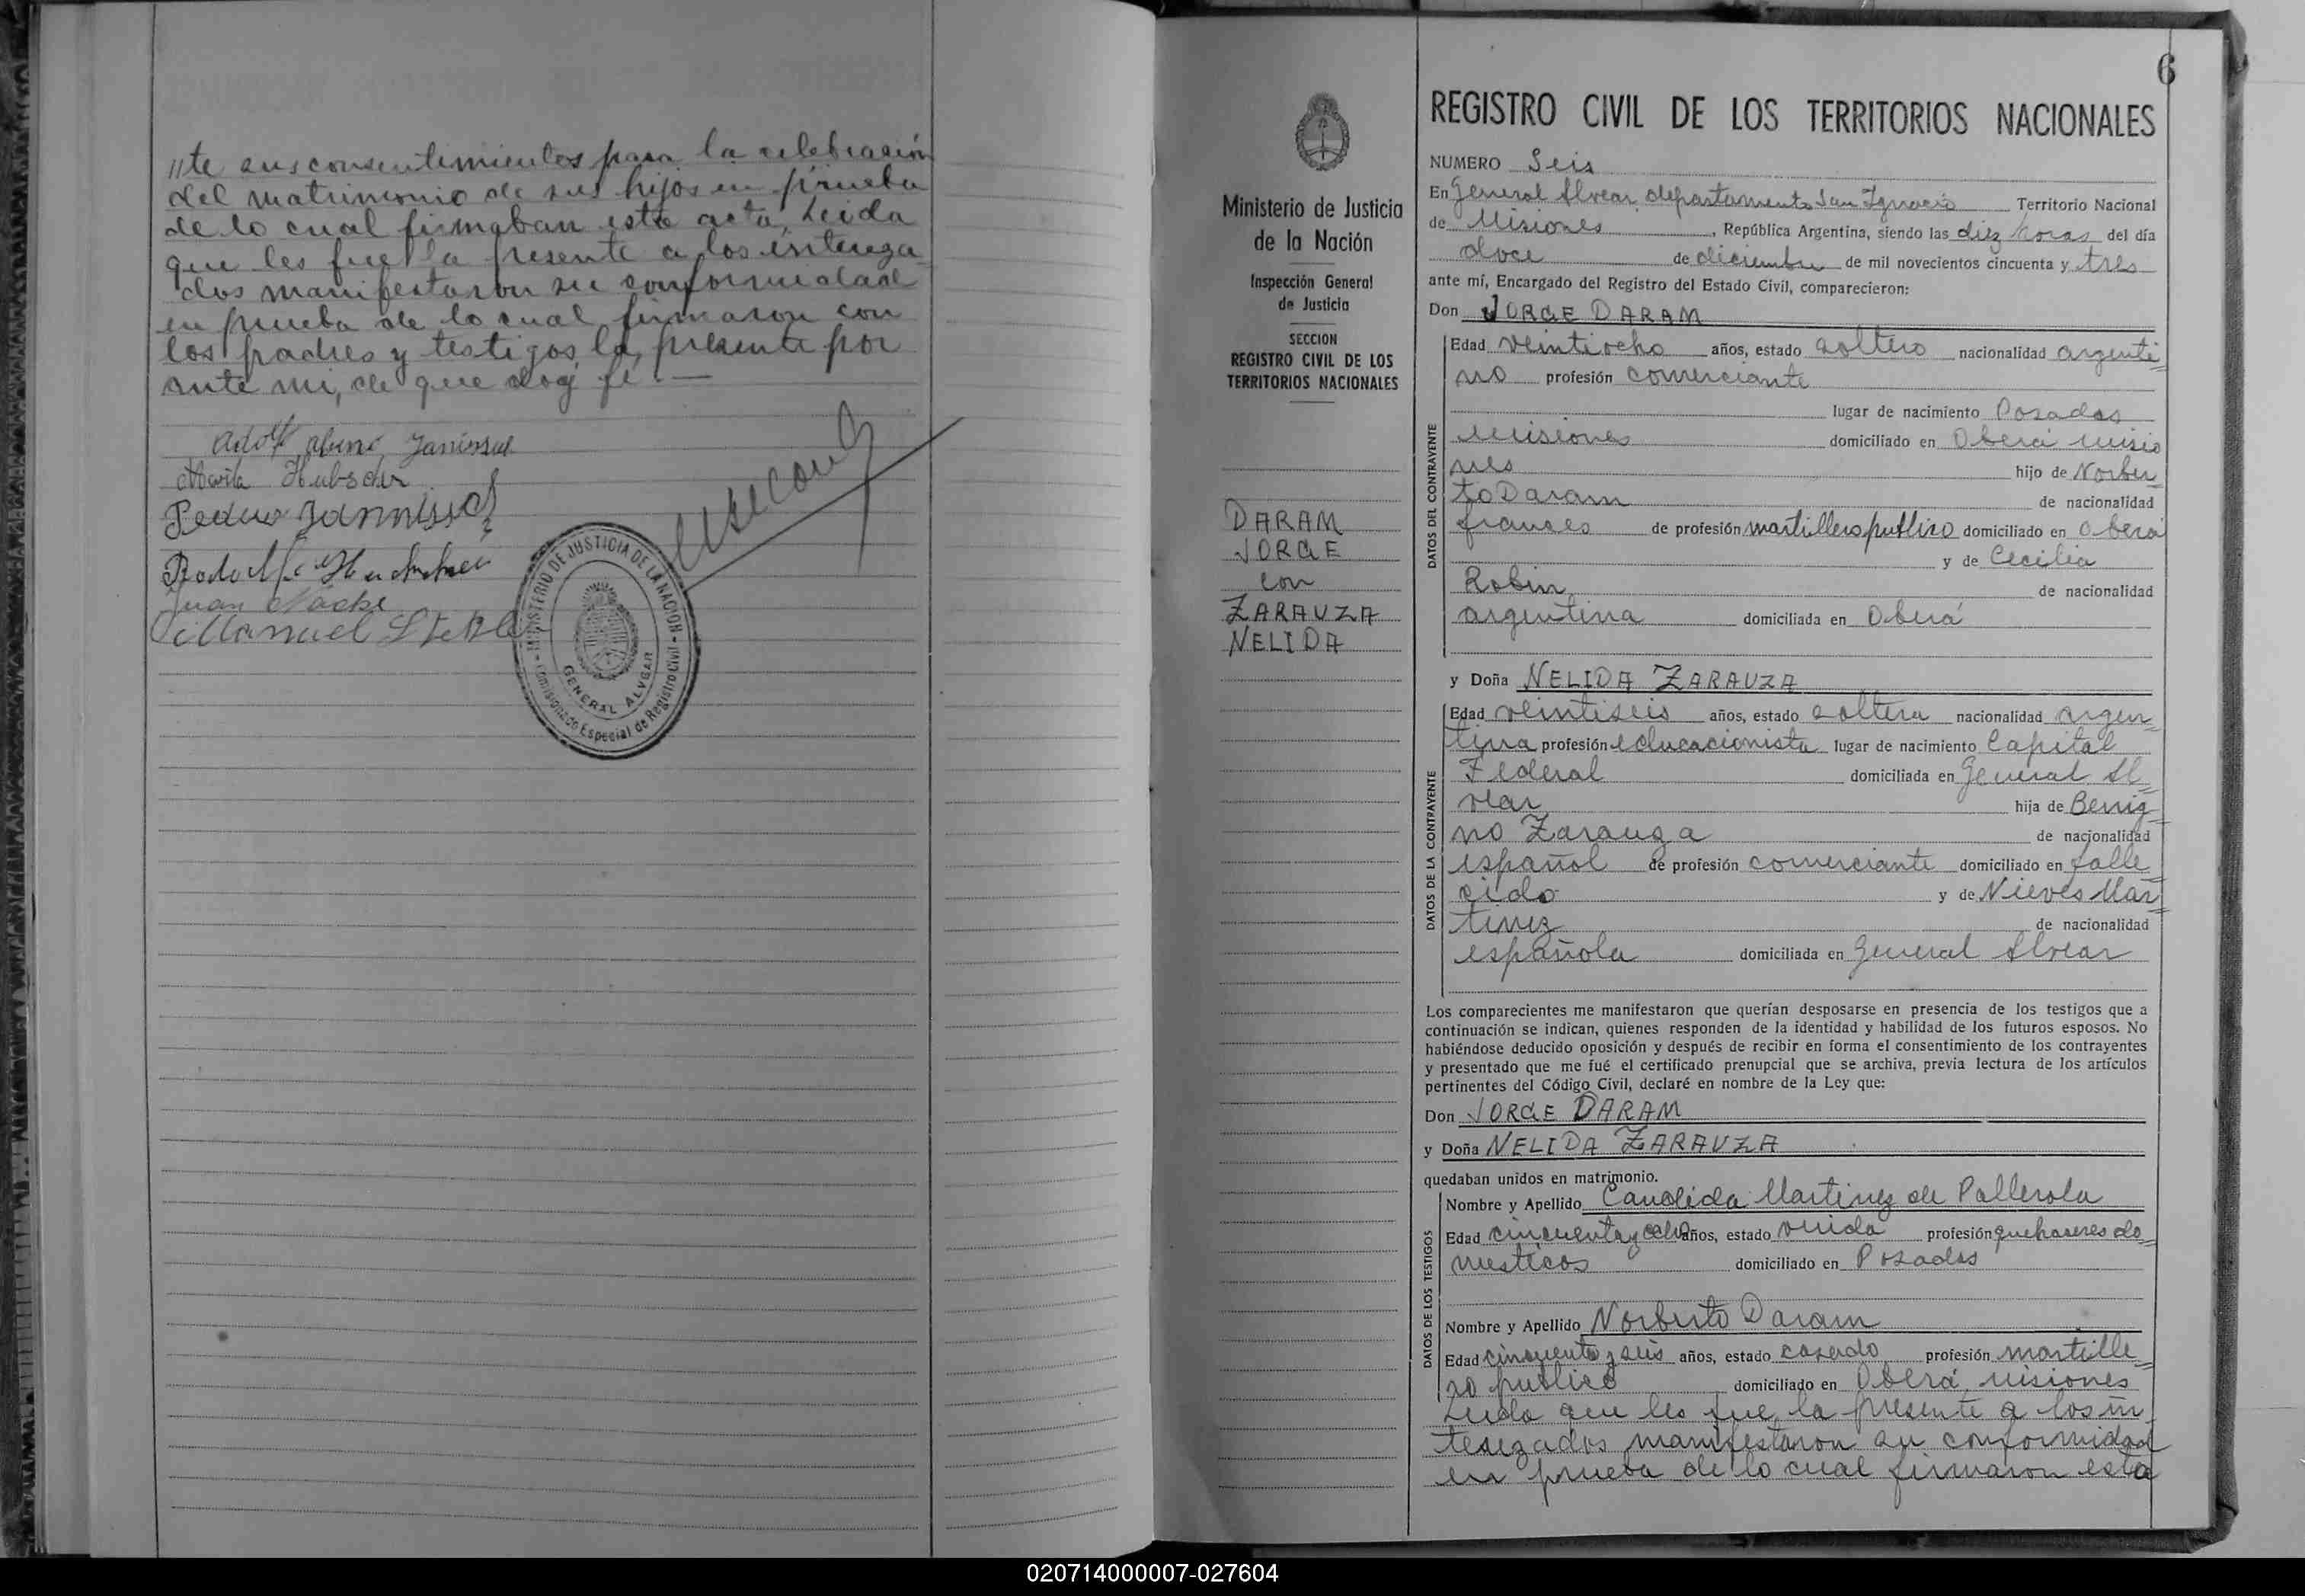 //te sus consentimientos para la celebración
del matrimonio de sus hijos en prueba
de lo cual firmaban esta acta, Leida
que les fue la presente a los intereza
dos manifestaron su conformidad
en prueba de lo cual firmaron con
los padres y testigos la presente por
ante mi, de que doy fé.—
Adolf
Hubscher
Pedro
Juan
Manuel
MINISTERIO DE JUSTICIA DE LA NACION
GENERAL ALVEAR
Comisionado Especial de Registro Civil
6
Ministerio de Justicia
de la Nación
Inspección General
de Justicia
SECCION
REGISTRO CIVIL DE LOS
TERRITORIOS NACIONALES
DARAM
JORGE
con
ZARAUZA
NELIDA
REGISTRO CIVIL DE LOS TERRITORIOS NACIONALES
NUMERO Seis
En General Alvear, departamento San Ignacio Territorio Nacional
de Misiones, República Argentina, siendo las diez horas del día
doce de diciembre de mil novecientos cincuenta y tres
ante mí, Encargado del Registro del Estado Civil, comparecieron:
Don JORGE DARAM
DATOS DEL CONTRAYENTE
Edad veintiocho años, estado soltero nacionalidad argenti=
no profesión comerciante
lugar de nacimiento Posadas
Misiones domiciliado en Oberá Misio
nes hijo de Norber=
to Daram de nacionalidad
frances de profesión martillero publico domiciliado en Oberá
y de Cecilia
Robin de nacionalidad
argentina domiciliada en Oberá
y Doña NELIDA ZARAUZA
DATOS DE LA CONTRAYENTE
Edad veintiseis años, estado soltera nacionalidad argen=
tina profesión educacionista lugar de nacimiento Capital
Federal domiciliada en General Al=
vear hija de Benig=
no Zarauza de nacionalidad
español de profesión comerciante domiciliado en falle=
cido y de Nieves Mar=
tinez de nacionalidad
española domiciliada en General Alvear
Los comparecientes me manifestaron que querían desposarse en presencia de los testigos que a
continuación se indican, quienes responden de la identidad y habilidad de los futuros esposos. No
habiéndose deducido oposición y después de recibir en forma el consentimiento de los contrayentes
y presentado que me fué el certificado prenupcial que se archiva, previa lectura de los artículos
pertinentes del Código Civil, declaré en nombre de la Ley que:
Don JORGE DARAM
y Doña NELIDA ZARAUZA
quedaban unidos en matrimonio.
DATOS DE LOS TESTIGOS
Nombre y Apellido Candida Martinez de Pallerola
Edad cincuenta y ocho años, estado viuda profesión quehaseres do=
mesticos domiciliado en Posadas
Nombre y Apellido Norberto Daram
Edad cincuenta y seis años, estado casado profesión martille=
ro publico domiciliado en Oberá, Misiones
Leida que les fue la presente a los in
terezados manifestaron su conformidad
en prueba de lo cual firmaron esta
020714000007-027604